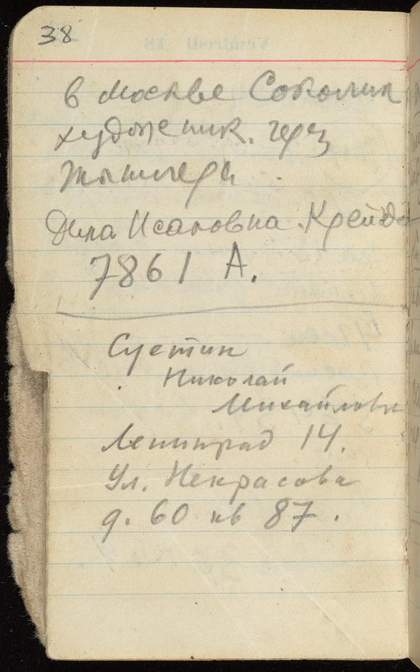 38
в Москве Соколик
художник. через
Дина Исаковна. Крейд
7861 А.
Суетин
Николай
Михайлович
Ленинград 14.
Ул. Некрасова
д. 60 кв 87.